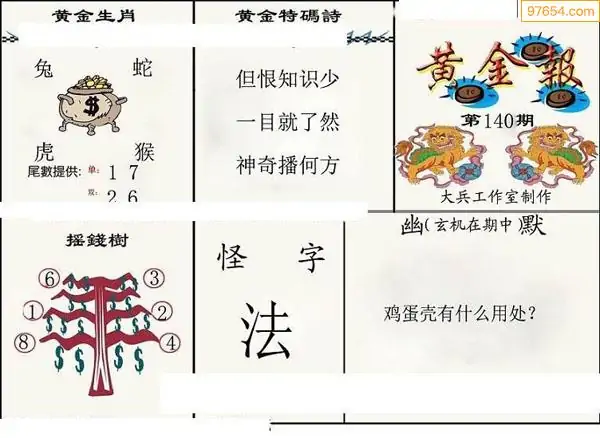 97654.com
黄金生肖
兔 蛇
$
虎 猴
尾數提供: 单: 1 7
双: 2 6
黄金特碼詩
但恨知识少
一目就了然
神奇播何方
黄金報
第140期
大兵工作室制作
摇錢樹
⑥ ③
① ②
⑧ ④
怪 字
法
幽(玄机在期中)默
鸡蛋壳有什么用处?